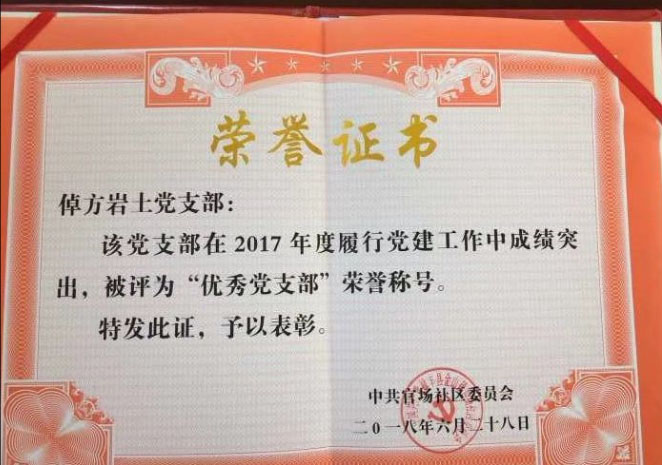 荣誉证书
倬方岩土党支部：
该党支部在 2017 年度履行党建工作中成绩突
出，被评为“优秀党支部”荣誉称号。
特发此证，予以表彰。
中共官场社区委员会
二0一八年六月二十八日